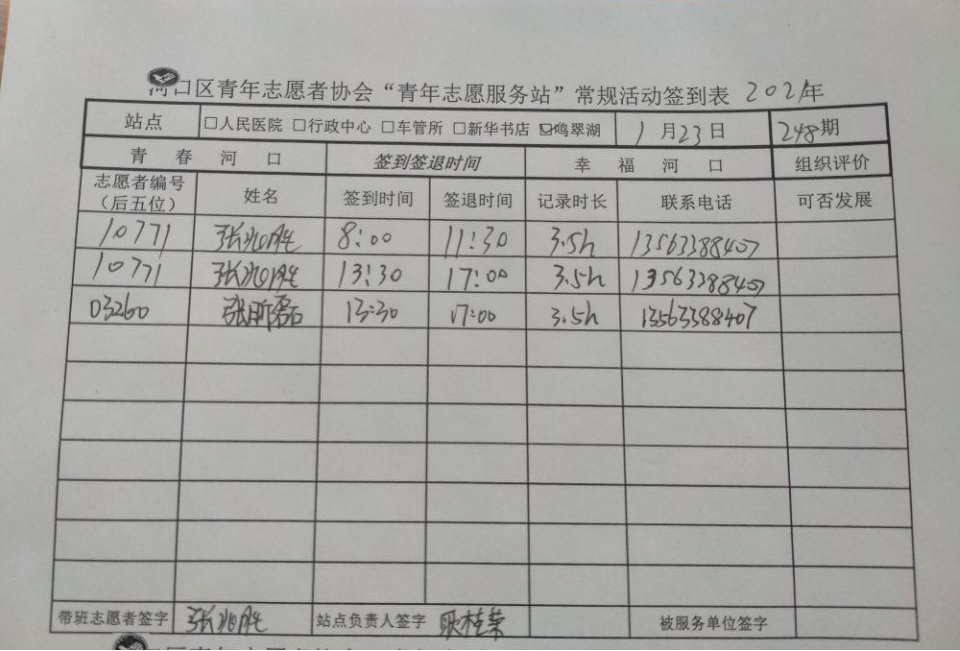 河口区青年志愿者协会“青年志愿服务站”常规活动签到表 2021年
站点 □人民医院 □行政中心 □车管所 □新华书店 ☑鸣翠湖 1月23日 248期
青春河口 签到签退时间 幸福河口 组织评价
志愿者编号（后五位） 姓名 签到时间 签退时间 记录时长 联系电话 可否发展
10771 张兆胜 8:00 11:30 3.5h 13563388407
10771 张兆胜 13:30 17:00 3.5h 13563388407
03260 张昕 13:30 17:00 3.5h 13563388407
带班志愿者签字 张兆胜 站点负责人签字 耿桂荣 被服务单位签字
口区青年志愿者协会